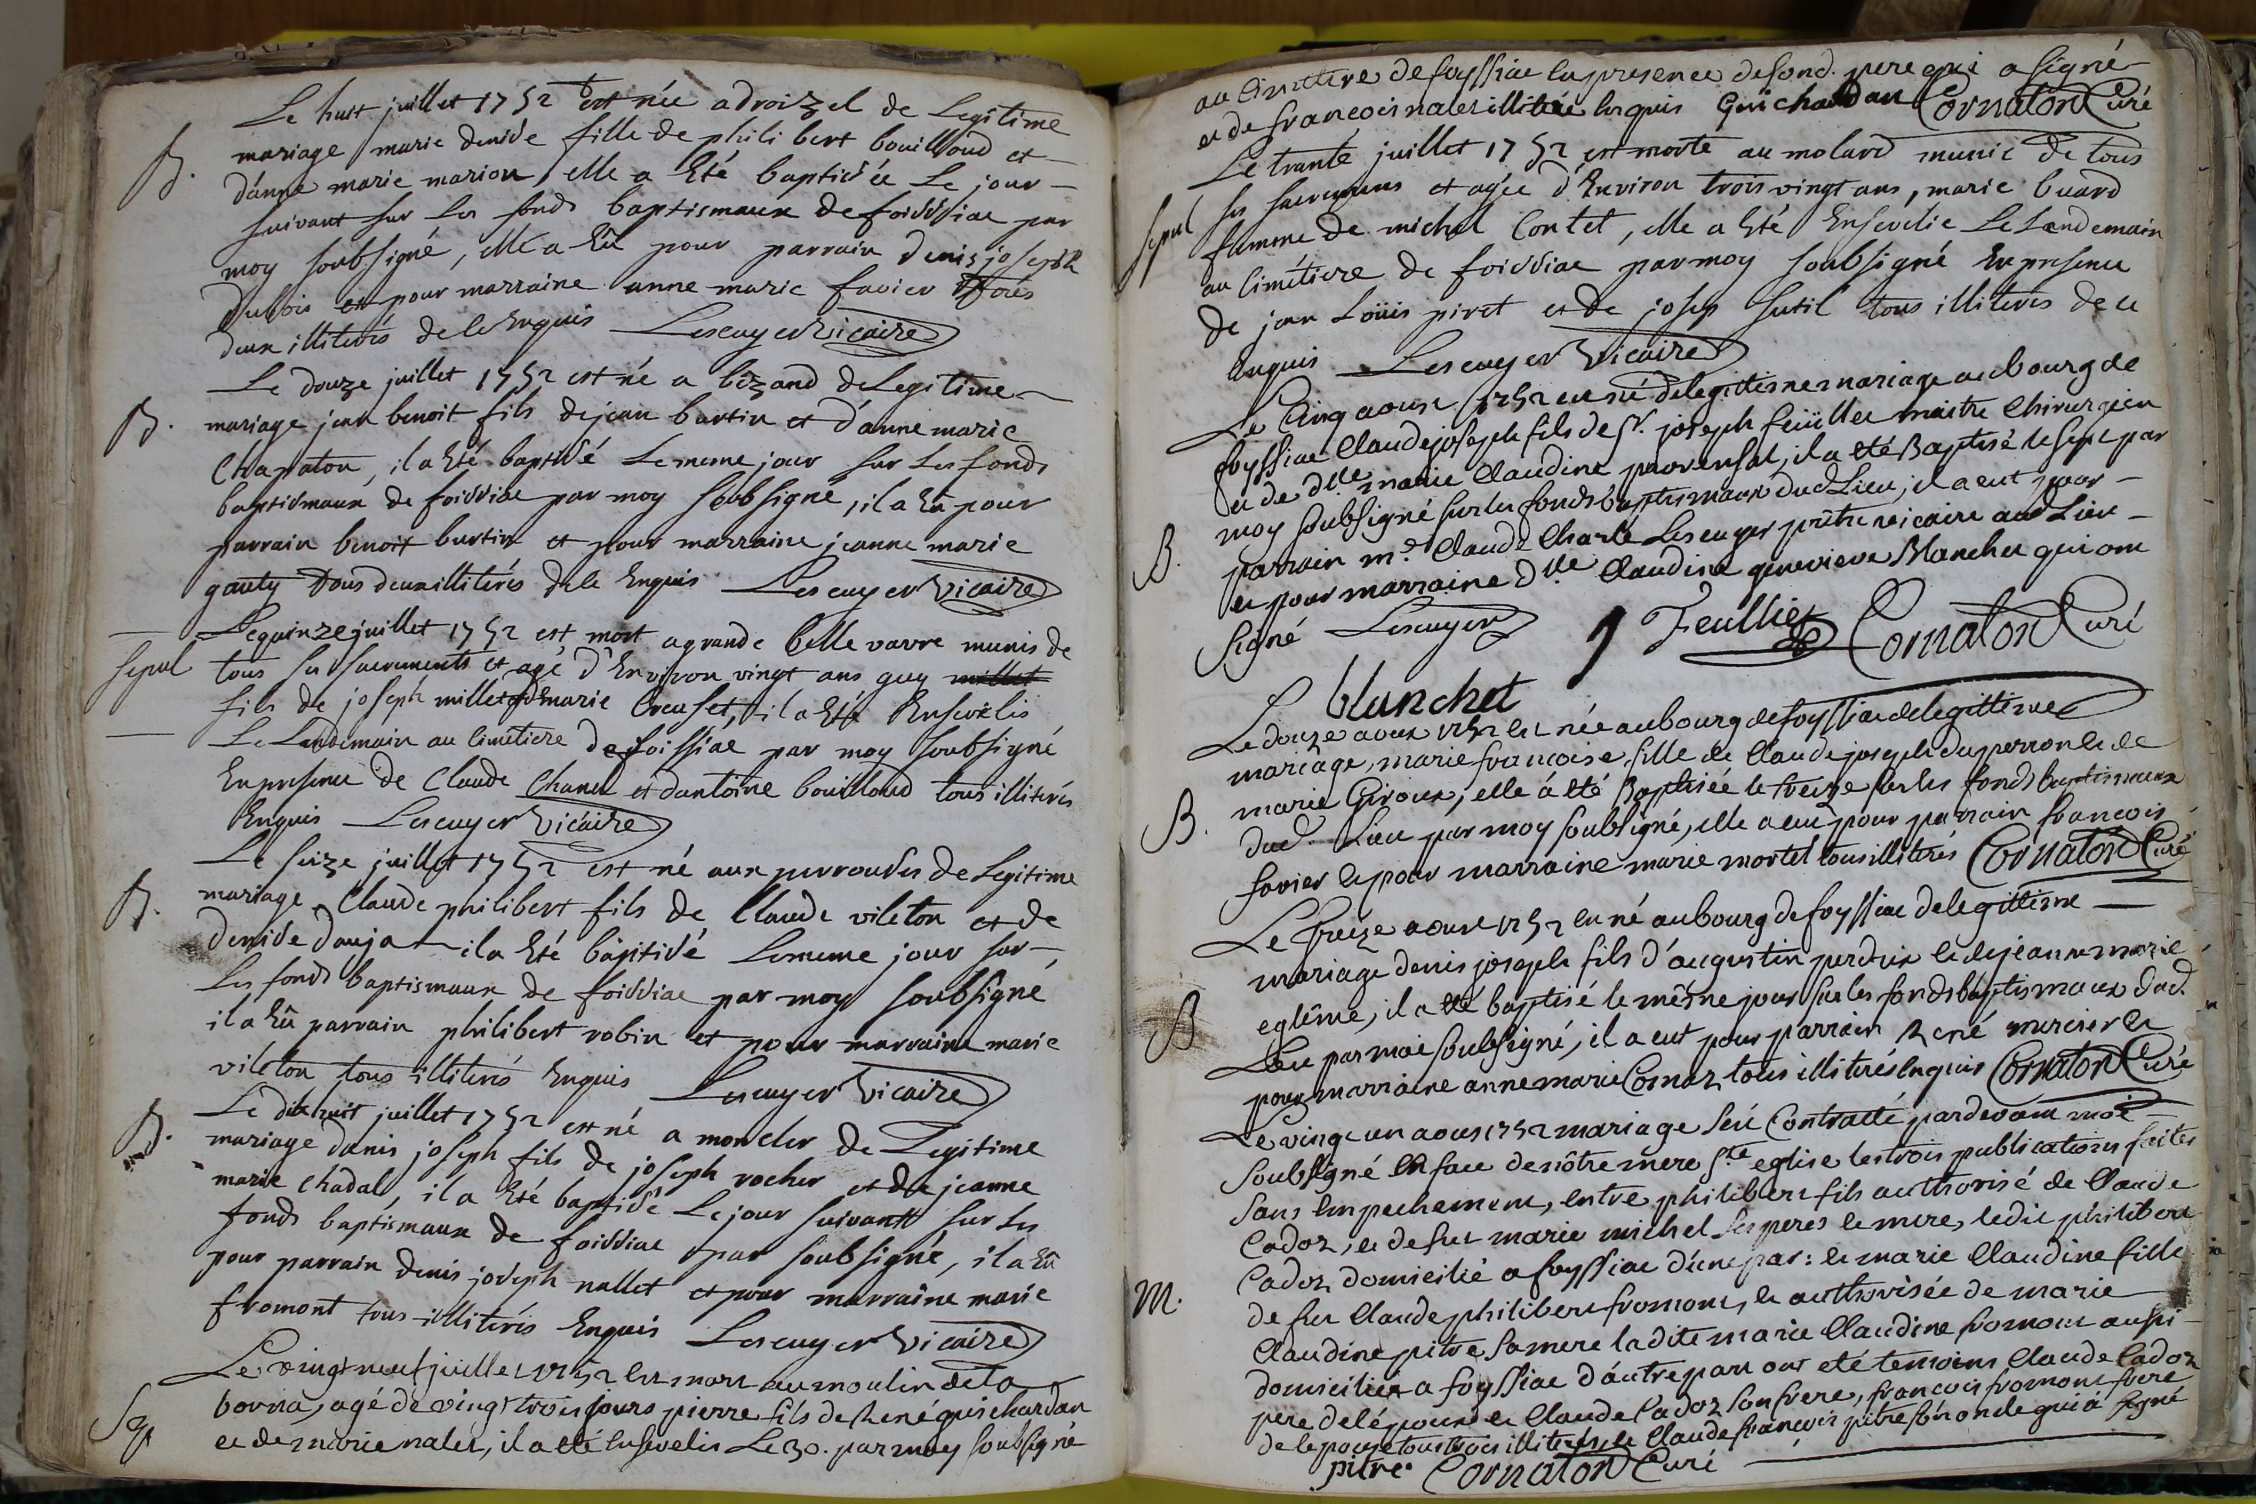 Le huit juillet 1752 est née a droizel de Legitime
B. mariage marie denise fille de philibert bouilloud et
d'anne marie marion, elle a Eté baptisée Le jour
suivant sur les fonds baptismaux de foissiac par
moy soubsigné, elle a Eû pour parrain denis joseph
dubois et pour marraine anne marie favier tous
deux illiterés de le Enquis Lescuyer vicaire
Le douze juillet 1752 est né a bézand de Legitime
B. mariage jean benoit fils de jean burtin et d'anne marie
Chapaton, il a Eté baptisé Le meme jour sur Les fonds
baptismaux de foissiac par moy soubsigné, il a Eû pour
parrain benoit burtin et pour marraine jeanne marie
gauty tous deux illiterés de le Enquis Lescuyer vicaire
Le quinze juillet 1752 est mort a grande belle vavre munis de
Sepul tous ses sacrements et agé d'Environ vingt ans guy millet
fils de joseph millet et de marie Creuset, il a Eté Ensevelis
Le Landemain au Cimetiere de foissiac par moy soubsigné
En presence de Claude Chanel et d'antoine bouilloud tous illiterés
Enquis Lescuyer vicaire
Le seize juillet 1752 est né aux perrouses de Legitime
B. mariage Claude philibert fils de Claude vileton et de
denise dauja il a Eté baptisé Le meme jour sur
Les fonds baptismaux de foissiac par moy soubsigné
il a Eû parrain philibert robin et pour marraine marie
vileton tous illiterés Enquis Lescuyer vicaire
Le dix huit juillet 1752 est né a moncler de Legitime
B. mariage denis joseph fils de joseph rocher et de jeanne
marie Chadal, il a Eté baptisé Le jour suivant sur Les
fonds baptismaux de foissiac par soubsigné, il a Eû
pour parrain denis joseph nallet et pour marraine marie
fromont tous illiterés Enquis Lescuyer vicaire
Le vingt neuf juillet 1752 est mort au moulin de la
Sep borna, agé de vingt trois jours pierre fils de René guichardan
et de marie nalet, il a eté Ensevelis Le 30. par moy soubsigné
au Cimetiere de foyssiac en presence de sond. pere qui a signé
et de francois nalet illiteré enquis Guichardan Cornaton Curé
Le trante juillet 1752 est morte au molard munie de tous
sepul ses sacremens et agée d'Environ trois vingt ans, marie buard
femme de michel Contet, elle a Eté Ensevelie Le Landemain
au Cimétiere de foissiac par moy soubsigné En presence
de jean Loüis piret et de josep sutil tous illiterés de ce
Enquis Lescuyer vicaire
Le Cinq aoust 1752 est né de legittime mariage au bourg de
foyssiac Claude joseph fils de Sr. joseph feüillet maitre Chirurgien
et de dlle marie Claudine provensal, il a eté Baptisé le sept par
moy soubsigné sur les fonds baptismaux dud Lieu, il a eut pour
B. parrain mr. Claude Charle Lescuyer prêtre vicaire aud Lieu
et pour marraine dlle Claudine genevieve Blanchet qui ont
signé Lescuyer J Feulliet Cornaton Curé
blanchet
Le douze aoust 1752 est née au bourg de foyssiac de legittime
mariage, marie francoise, fille de Claude joseph duperron et de
marie Giroux, elle á eté Baptisée le treize sur les fonds baptismaux
B. dud. Lieu par moy soubsigné, elle a eut pour parrain francois
favier et pour marraine marie mortel tous illiterés Cornaton Curé
Le treize aoust 1752 est né au bourg de foyssiac de legittime
mariage denis joseph fils d'augustin perdrix et de jeanne marie
B eglême, il a eté baptisé le même jour sur les fonds baptismaux dud.
Lieu par moi soubsigné, il a eut pour parrain René mercier et
pour marraine anne marie Cornaz tous illiterés enquis Cornaton Curé
Le vingt un aoust 1752 mariage seié Contracté pardevant moi
soubsigné en face de nôtre mere Ste eglise les trois publications faites
sans empechement, entre philibert fils authorisé de Claude
Cadoz, et de feu marie michel ses peres et mere, ledit philibert
Cadoz domicilié a foyssiac d'une par: et marie Claudine fille
M. de feu Claude philibert fromont, et authorisée de marie
Claudine pitre sa mere ladite marie Claudine fromont aussi
domiciliée a foyssiac d'autre part ont eté temoins Claude Cadoz
pere de lépoux et Claude Cadoz son frere, francois fromont frere
de lepouse tous trois illiterés, et Claude francois pitre son oncle qui á signé
pitre Cornaton Curé